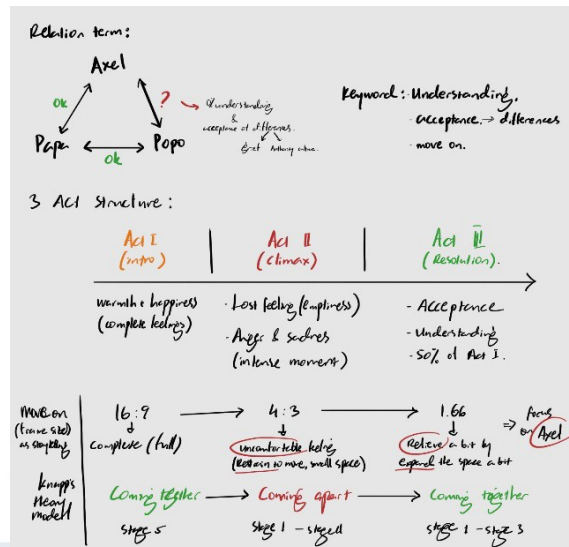 Relation term:
Axel
ok
?
understanding
&
acceptance of differences.
Grief
culture.
Papa
ok
Popo
Keyword: Understanding.
- acceptance. → differences
- move on.
3 Act Structure:
Act I
(intro)
Act II
(Climax)
Act III
(Resolution).
warmth & happiness
(complete feelings)
- Lost feeling (emptiness)
- Anger & sadness
(intense moment)
- Acceptance
- Understanding
- 50% of Act I.
(frame size)
as storytelling
16:9 → 4:3 → 1.66 ⇒ focus on Axel
complete (full)
uncomfortable feeling
(Restrain to move, small space)
Relieve a bit by
expand the space a bit
Knapp's
model
Coming together → Coming apart → Coming together
stage 5
stage 1 - stage 4
stage 1 - stage 3